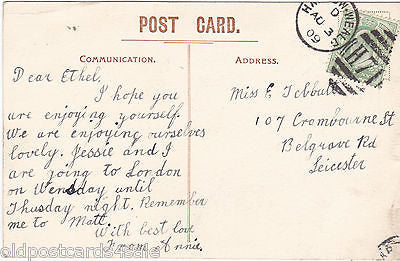 POST CARD.
COMMUNICATION.
ADDRESS.
Dear Ethel,
I hope you
are enjoying yourself.
We are enjoying ourselves
lovely. Jessie and I
are going to London
on Wensday until
Thusday night. Remember
me to Matt.
With best love
From Annie.
Miss E Tebbutt
107 Crombourne St
Belgrave Rd
Leicester
D
AU 3
09
H17
oldpostcards4sale